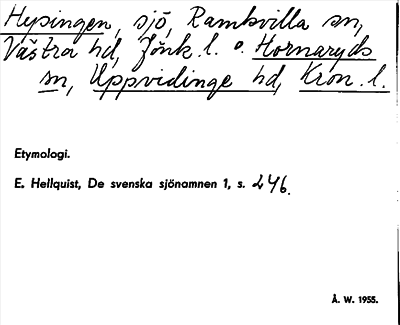 Hysingen, sjö, Ramkvilla sn,
Västra hd, Jönk. l. o. Hornaryds
sn, Uppvidinge hd, Kron. l.
Etymologi.
E. Hellquist, De svenska sjönamnen 1, s. 246.
Å. W. 1955.